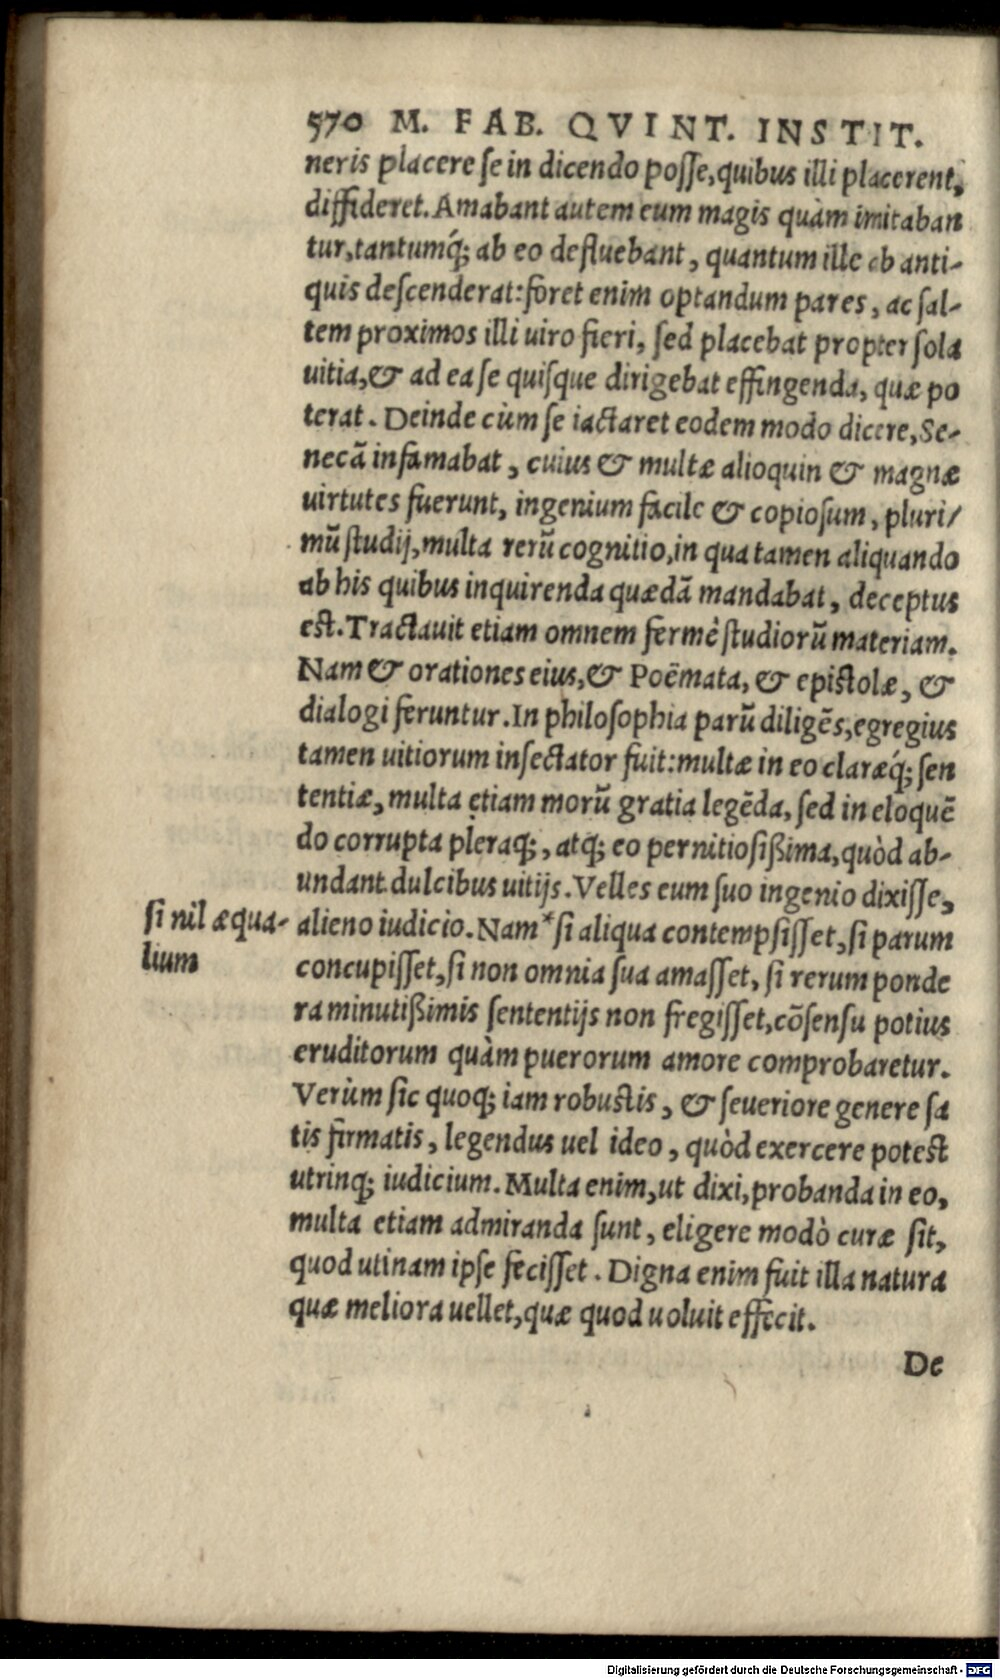 570 M. FAB. QVINT. INSTIT.
neris placere ſe in dicendo poſſe, quibus illi placerent,
diffideret. Amabant autem eum magis quàm imitaban
tur, tantumq́; ab eo defluebant, quantum ille ab anti-
quis deſcenderat: foret enim optandum pares, ac ſal-
tem proximos illi uiro fieri, ſed placebat propter ſola
uitia, & ad ea ſe quiſque dirigebat effingenda, quæ po
terat. Deinde cùm ſe iactaret eodem modo dicere, Se-
necã infamabat, cuius & multæ alioquin & magnæ
uirtutes fuerunt, ingenium facile & copioſum, pluri/
mũ ſtudij, multa rerũ cognitio, in qua tamen aliquando
ab his quibus inquirenda quædã mandabat, deceptus
eſt. Tractauit etiam omnem fermè ſtudiorũ materiam.
Nam & orationes eius, & Poëmata, & epiſtolæ, &
dialogi feruntur. In philoſophia parũ diligẽs, egregius
tamen uitiorum inſectator fuit: multæ in eo claræq́; ſen
tentiæ, multa etiam morũ gratia legẽda, ſed in eloquẽ
do corrupta pleraq;, atq; eo pernitioſißima, quòd ab-
undant dulcibus uitijs. Velles eum ſuo ingenio dixiſſe,
alieno iudicio. Nam * ſi aliqua contempſiſſet, ſi parum
ſi nil æqua-
lium
concupiſſet, ſi non omnia ſua amaſſet, ſi rerum ponde
ra minutißimis ſententijs non fregiſſet, cõſenſu potius
eruditorum quàm puerorum amore comprobaretur.
Verùm ſic quoq; iam robuſtis, & ſeueriore genere ſa
tis firmatis, legendus uel ideo, quòd exercere poteſt
utrinq; iudicium. Multa enim, ut dixi, probanda in eo,
multa etiam admiranda ſunt, eligere modò curæ ſit,
quod utinam ipſe feciſſet. Digna enim fuit illa natura
quæ meliora uellet, quæ quod uoluit effecit.
De
Digitalisierung gefördert durch die Deutsche Forschungsgemeinschaft - DFG